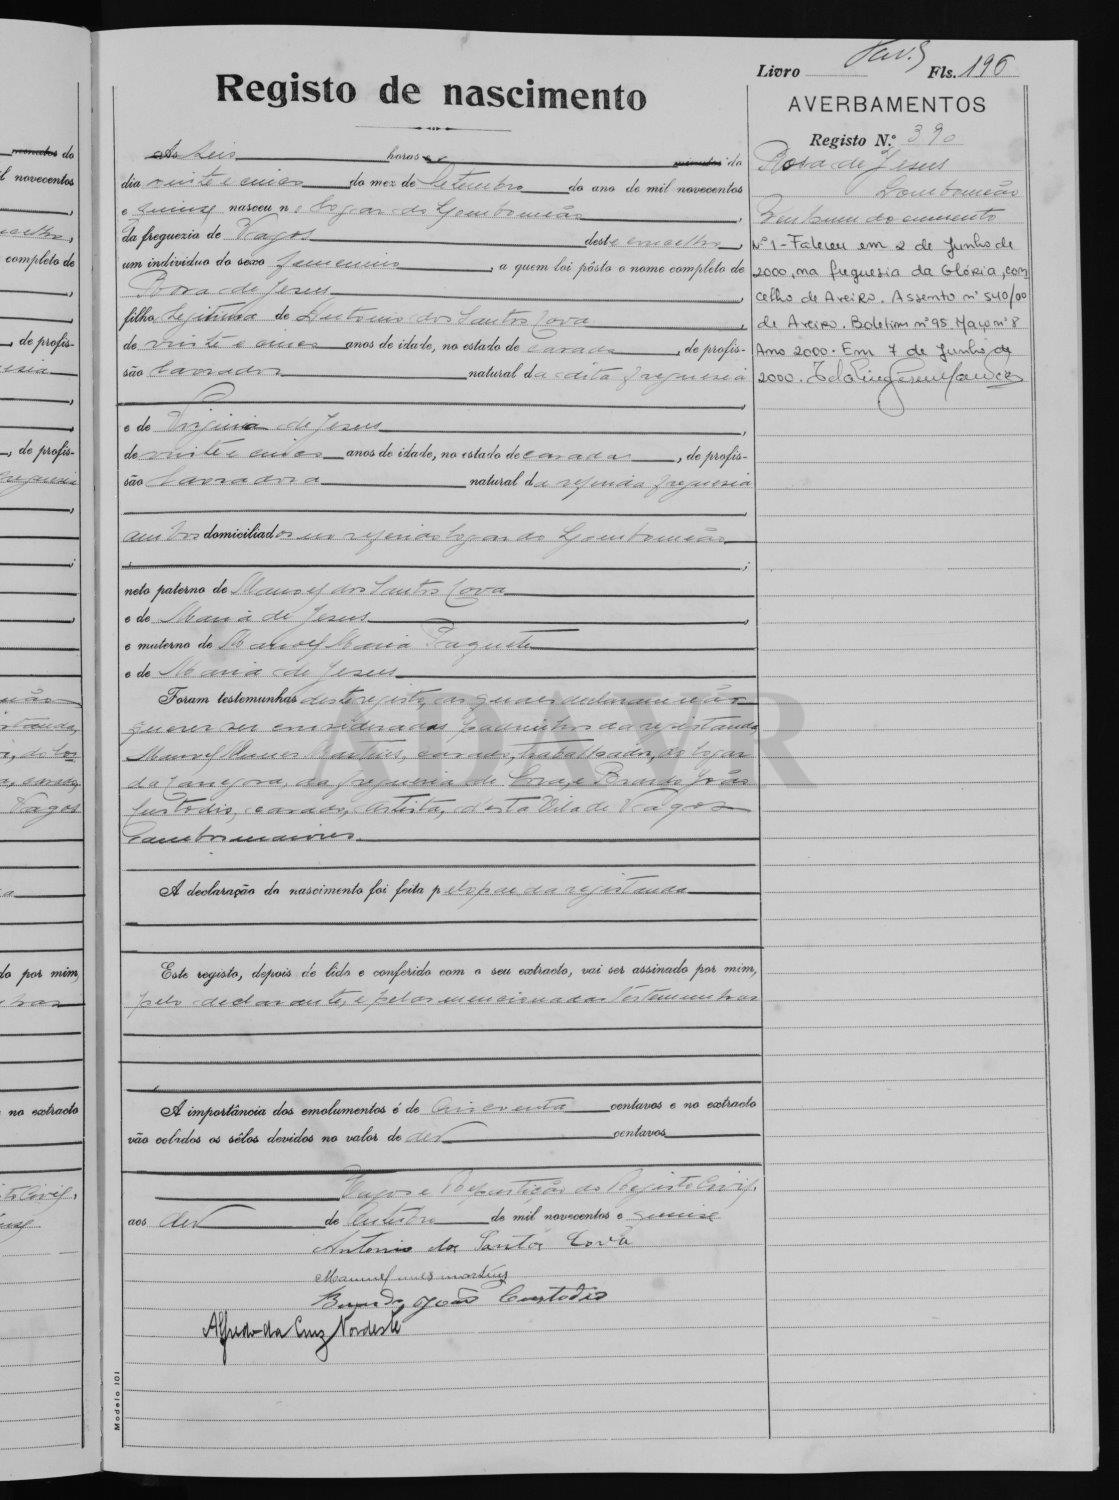 Livro Fls. 196
Registo de nascimento
AVERBAMENTOS
Registo N.º 390
Rosa de Jesus
Lombomeão
Nenhum documento
Nº 1 - Faleceu em 2 de Junho de
2000, na freguesia da Glória, con
celho de Aveiro. Assento nº 540/00
de Aveiro. Boletim nº 95 Maço nº 8
Ano 2000. Em 7 de Junho de
2000.
Ás seis horas e minutos do
dia vinte e cinco do mez de Setembro do ano de mil novecentos
e quinze nasceu no logar do Lombomeão,
da freguezia de Vagos deste concelho,
um individuo do sexo femenino, a quem foi pôsto o nome completo de
Rosa de Jesus,
filha legitima de Antonio dos Santos Cova,
de vinte e cinco anos de idade, no estado de casado, de profis-
são lavrador natural da dita freguesia
,
e de Virginia de Jesus,
de vinte e cinco anos de idade, no estado de casada, de profis-
são lavradora natural da referida freguesia
,
ambos domiciliados no referido logar do Lombomeão
;
neto paterno de Manoel dos Santos Cova
e de Maria de Jesus,
e materno de Manoel Maria
e de Maria de Jesus
Foram testemunhas deste registo, as quaes declararam não
querer ser consideradas padrinhos da registanda
Manoel Nunes Martins, casado, trabalhador, do logar
da freguesia de e Brando João
Custodio, casado, artista, desta Vila de Vagos
e ambos maiores
A declaração do nascimento foi feita pelo pae da registanda
Este registo, depois de lido e conferido com o seu extracto, vai ser assinado por mim,
pelo declarante, e pelas mencionadas testemunhas
A importância dos emolumentos é de cincoenta centavos e no extracto
vão colados os sêlos devidos no valor de dez centavos
Vagos e Repartição do Registo Civil,
aos dez de Outubro de mil novecentos e quinze
Antonio dos Santos Cova
Manuel nunes martins
Brando João Custodio
Alfredo da Cruz Nordeste
Modelo 101